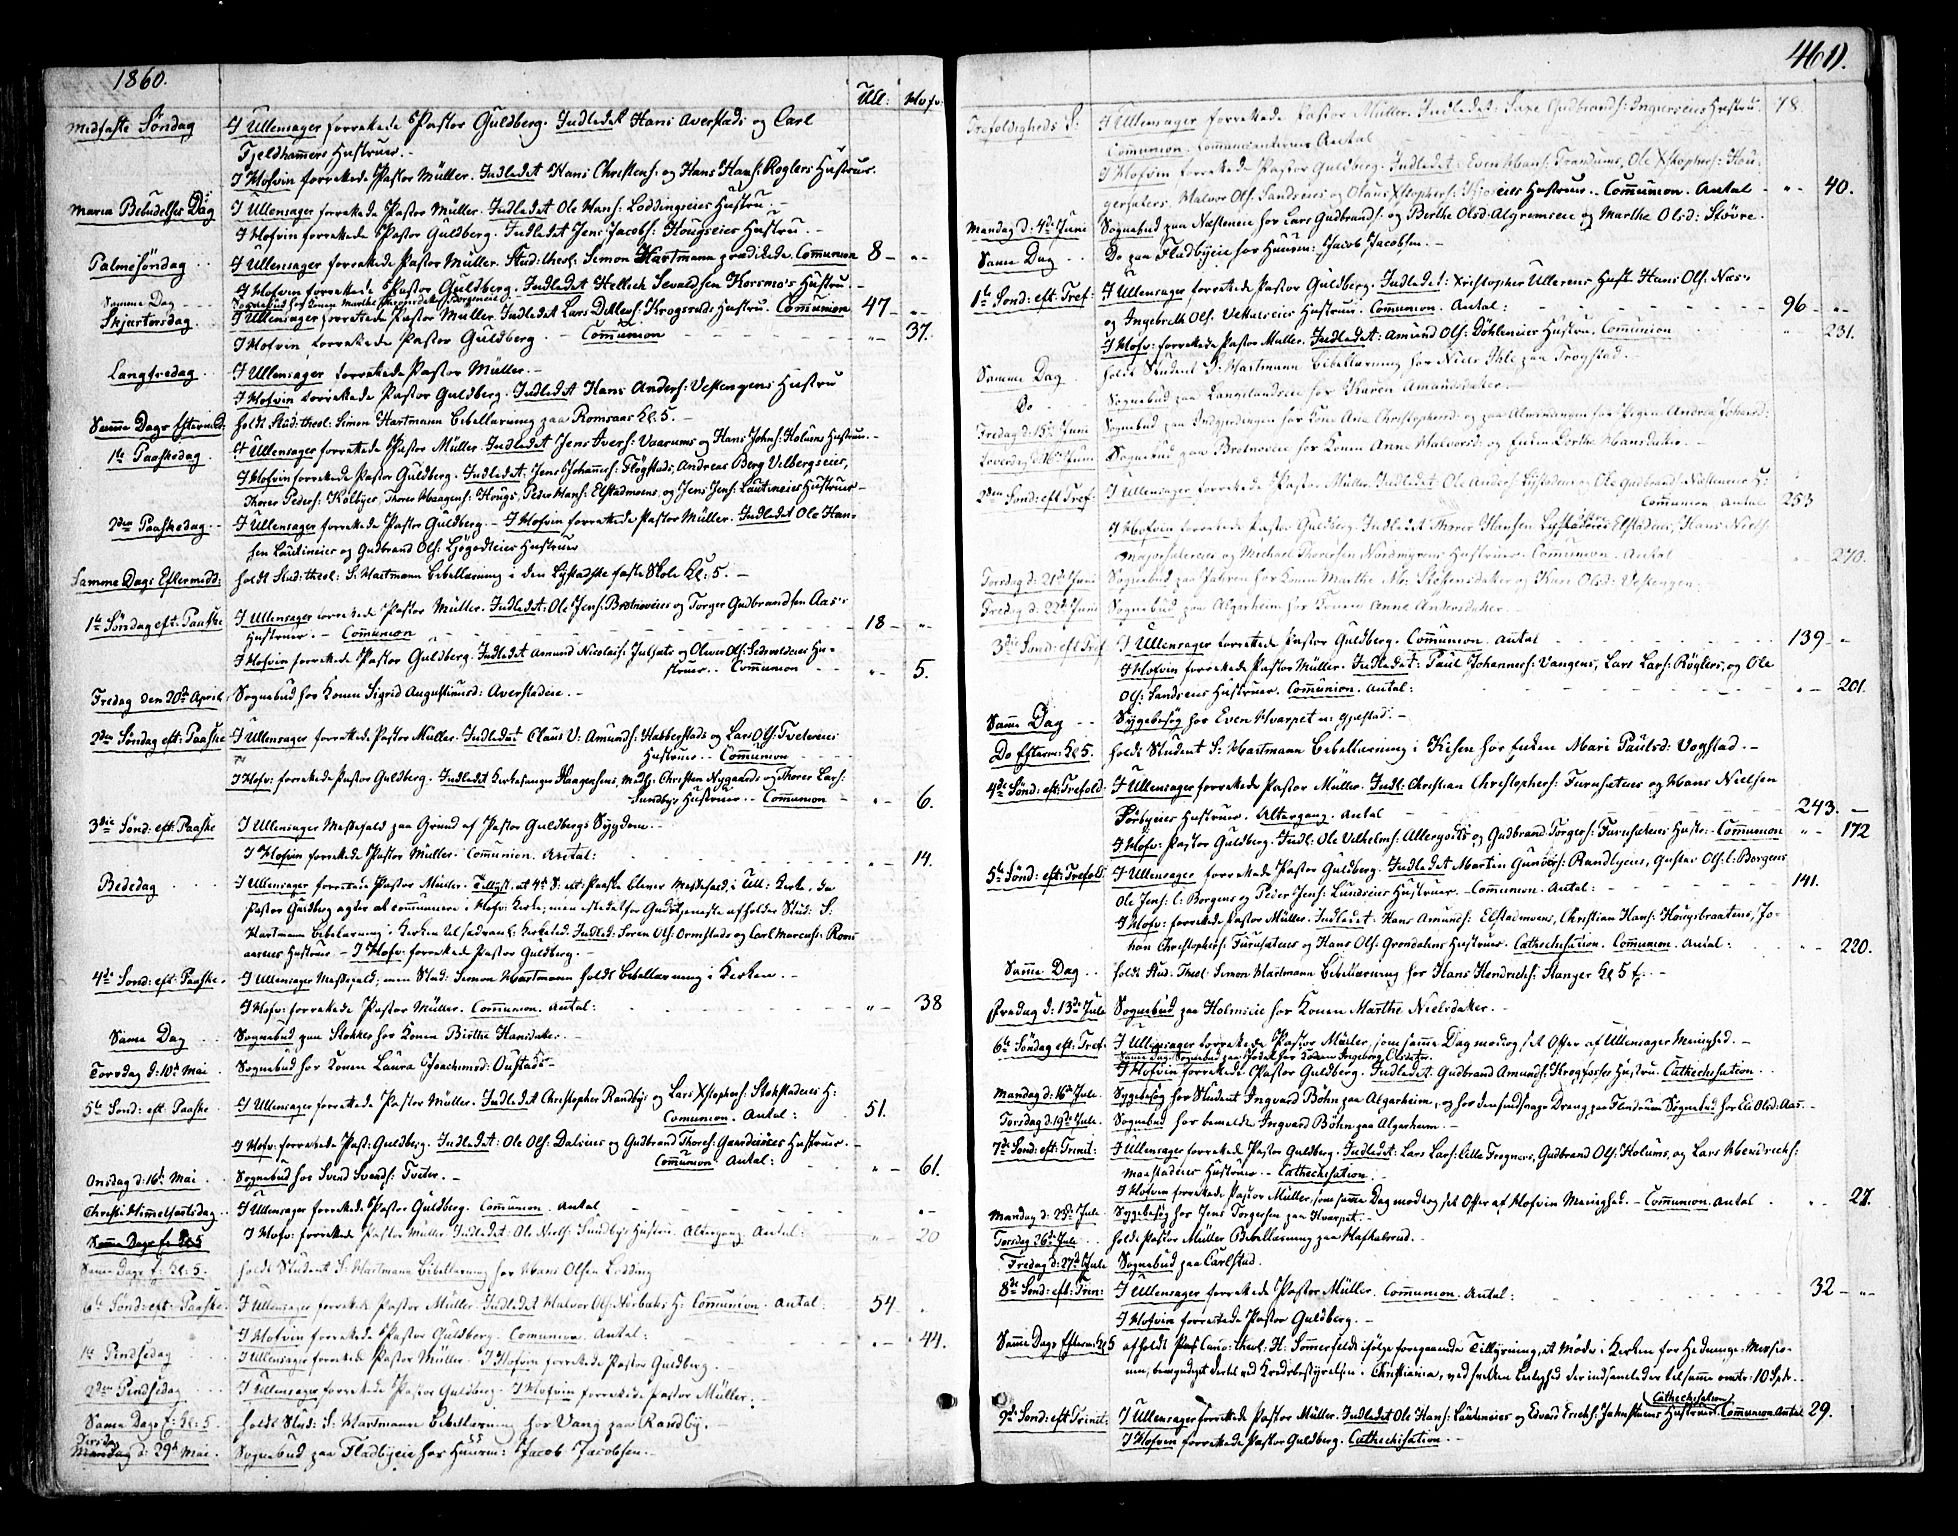 1860.
Ull: Hofv:
Midfaste Söndag I Ullensager forrettede Pastor Guldberg. Indledet Hans Averstads og Carl
Fjeldhammers Hustruer. -
I Hofvin forrettede Pastor Müller. Indledet Hans Christens: og Hans Hans: Roglers Hustruer.
Maria Bebudelses Dag I Ullensager forrettede Pastor Müller. Indledet Ole Hans: Loddingseies Hustru. -
I Hofvin forrettede Pastor Guldberg. Indledet Jens Jacobs: Hougseies Hustru. -
Palmesöndag I Ullensager forrettede Pastor Müller. Stud: theol: Simon Hartmann prædikede. Communion 8 - " -
I Hofvin forrettede Pastor Guldberg. Indledet Hellich Sevaldsen Horsmo's Hustru. -
Samme Dag Sognebud hos Konen Marthe
Skjærtorsdag I Ullensager forrettede Pastor Müller. Indledet Lars Ditlevs: Krogsruds Hustru. Communion 47 - " -
I Hofvin forrettede Pastor Guldberg. - Communion " - 37.
Langfredag I Ullensager forrettede Pastor Müller. -
I Hofvin forrettede Pastor Guldberg. Indledet Hans Anders: Vestengens Hustru
Samme Dags Eftermidd: holdt Stud: theol: Simon Hartmann Bibellæsning paa Romsaas Kl: 5. -
1ste Paaskedag I Ullensager forrettede Pastor Müller. Indledet Jens Ivers: Vaarums og Hans Johns: Holums Hustruer. -
I Hofvin forrettede Pastor Guldberg. Indledet: Jens Johannes: Flögstads, Andreas Berg Velbergseies,
Thorer Peders: Kolbyes, Thorer Haagens: Hougs, Peder Hans: Elstadmoens, og Jens Jens: Lautineies Hustruer
2den Paaskedag - I Ullensager forrettede Pastor Guldberg. - I Hofvin forrettede Pastor Müller. Indledet Ole Han-
sen Lautineies og Gudbrand Ols: Ljögodteies Hustruer
Samme Dags Eftermidd: holdt Stud: theol: S: Hartmann Bibellæsning i den Lystadske faste Skole Kl: 5. -
1ste Söndag eft: Paaske I Ullensager forrettede Pastor Müller. Indledet: Ole Jens: Brotnoeies og Torger Gudbrandsen Aas's
Hustruer. - Communion 18 - "
I Hofvin forrettede Pastor Guldberg. Indledet Amund Nicolais: Julsæts og Oliver Ols: Hu-
struer. - Communion " - 5.
Fredag den 20de April: Sognebud hos Konen Sigrid Augustinusd: Averstadeie. -
2den Söndag eft: Paaske I Ullensager forrettede Pastor Müller. Indledet Claus V: Amunds: Habberstads og Lars Ols: Tveterеies
Hustruer. - Communion
I Hofv: forrettede Pastor Guldberg. Indledet Kirkesanger Haagensens, Christen Nygaards og Thorer Lars:
Sundbys Hustruer. - Communion " - 6.
3die Sönd: eft: Paaske I Ullensager Messefald paa Grund af Pastor Guldbergs Sygdom. -
I Hofvin forrettede Pastor Müller. Communion. Antal: " - 14.
Bededag I Ullensager forrettede Pastor Müller. Tillyst, at 4de S: eft: Paaske bliver Messefald i Ull: Kirke, da
Pastor Guldberg agter at communicere i Hofv: Kirke; men istedetfor Gudstjeneste afholder Stud: S:
Hartmann Bibellæsning i Kirken Indled: Sören Ols: Ormstads og Carl Marcus: Rom
aaseies Hustruer - I Hofv: forrettede Pastor Guldberg. -
4de Sönd: eft: Paaske. I Ullensager Messefald, men Stud: Simon Hartmann holdt Bibellæsning i Kirken. -
I Hofv: forrettede Pastor Müller. Communion. Antal: " - 38
Samme Dag Sognebud paa Stokkes hos Konen Birthe Hansdatter. -
Torsdag d: 10de Mai Sognebud hos Konen Laura Joachimsd: Oustad. -
5te Sönd: eft: Paaske I Ullensager forrettede Pastor Müller. Indledet Christopher Randbys og Lars Xstophers: Stokstadeies H:
Comunion. Antal: 51.
I Hofv: forrettede Past: Guldberg. Indledet: Ole Ols: Dalsеies og Gudbrand Thores: Gaarderеies Hustruer. -
Communion Antal: " - 61.
Onsdag d: 16de Mai Sognebud hos Svend Svends: Tveter. -
Christi Himmelfartsdag I Ullensager forrettede Pastor Guldberg. Comunion. Antal " -
I Hofv: forrettede Pastor Müller. Indledet: Ole Niels: Sundbys Hustru. Altergang. Antal: 20
Samme Dags E: Kl: 5
Samme Dags E: Kl: 5. holdt Student S: Hartmann Bibellæsning hos Hans Olsen Lodding
6te Sönd: eft: Paaske. I Ullensager forrettede Pastor Müller. Indledet Halvor Ols: H: Communion. Antal: 54.
I Hofvin forrettede Pastor Guldberg. Comunion. Antal: " - 44.
1ste Pindsedag I Ullensager forrettede Pastor Müller. I Hofvin forrettede Pastor Guldberg.
2den Pindsedag I Ullensager forrettede Pastor Guldberg. I Hofvin forrettede Pastor Müller.
Samme Dags E: Kl: 5 holdt Stud: S: Hartmann Bibellæsning hos Vang paa Randby.
Tirsdag
Mandag d: 29de Mai. Sognebud paa Fladbyeie hos Huusm: Jacob Jacobsen. -
461).
Trefoldigheds S: I Ullensager forrettede Pastor Müller. Indledet: Gudbrands: Ingierseies Hustru. 78.
Communion. Antal
I Hofvin forrettede Pastor Guldberg. Indledet: Even Hans: Trandums, Ole Xstophers: Hau-
gersæters. Halvor Ols: Sandseies og Olaus Xstophers: Hustruer. - Communion. Antal - " - 40.
Mandag d: 4de Juni Sognebud paa Næsteneie hos Lars Gudbrands: og Berthe Olsd: Algremseie og Marthe Olsd: Stövre.
Samme Dag Do paa Fladbyeie hos Huusm: Jacob Jacobsen. -
1ste Sönd: eft: Tref: I Ullensager forrettede Pastor Guldberg. Indledet: Xristopher Ullerens Hust: Hans Ols: Næs-
og Ingebreth Ols: Hustruer. Communion. Antal: 96 - " -
I Hofv: forrettede Pastor Müller. Indledet: Amund Ols: Döhleneies Hustru. Communion " 231.
Samme Dag holdt Student S: Hartmann Bibellæsning hos Niels Ihle paa Trögstad.
Do Sognebud paa Langelandseie hos Karen Amundsdatter.
Fredag d: 15de Juni Sognebud paa hos Kone Ane Christophersd: og paa Almindingen hos Pigen Andrea Johansd:
Löverdag d: 16de Juni Sognebud paa Brotnoeie hos Konen Anne Halvorsd: og Enken Dorthe Hansdatter. -
2den Sönd: eft: Tref: I Ullensager forrettede Pastor Müller. Indledet Ole Anders: og Ole Gudbrand: Næsteneies H:
Communion. Antal 253
I Hofvin forrettede Pastor Guldberg. Indledet Thorer Hansen Elstadeies, Hans Niels:
og Michael Thoresen Nordmyrens Hustruer. Communion. Antal " 270.
Torsdag d: 21de Juni Sognebud paa Jahren hos Konen Marthe Mo: Steffensdatter og Kari Olsd: Vestengen.
Fredag d: 22de Juni Sognebud paa Algarheim hos Konen Anne Andersdatter.
3die Sönd: eft: Tref: I Ullensager forrettede Pastor Guldberg. Communion. Antal 139 -
I Hofvin forrettede Pastor Müller. Indledet: Paul Johannes: Vangens, Lars Lars: Röglers, og Ole
Ols: Sandseies Hustruer. Communion. Antal: " - 201.
Samme Dag - - Sygebesög hos Even Hvarpet -
Do Efterm: Kl 5. holdt Student S: Hartmann Bibellæsning i Kisen hos Enken Mari Paulsd: Vogstad. -
4de Sönd: eft: Trefold: I Ullensager forrettede Pastor Müller. Indl: Christian Christophers: Furusæteies og Hans Nielsen
Sörbyeies Hustruer. Altergang. Antal 243. -
I Hofv: Pastor Guldberg. Indl: Ole Vilhelms: Allergodts og Gudbrand Torgers: Furusæteies Hustr: Communion " - 172
5te Sönd: eft: Trefold: I Ullensager forrettede Pastor Guldberg. Indledet Martin Gunders: Randbyeies, Gustav Ols: l: Borgens
Ole Jens: l: Borgens og Peder Jens: Lundseies Hustruer. - Communion. Antal: 141.
I Hofv: forrettede Pastor Müller. Indledet: Hans Amunds: Elstadmoens, Christian Hans: Hougsbraatens, Jo-
han Christophers: Furusæteies og Hans Ols: Gröndalens Hustruer. Cathechisation. Communion. Antal: " - 220.
Samme Dag holdt Stud. Theol: Simon Hartmann Bibellæsning hos Hans Hendrichs: Stanger Kl 5 E. -
Fredag d: 13de Juli Sognebud paa Holmseie hos Konen Marthe Nielsdatter. -
6te Söndag eft: Tref: I Ullensager forrettede Pastor Müller, som samme Dag modtog sit Offer af Ullensager Menighed. -
Samme Dag: Sognebud paa Jödahl hos Konen Ingeborg Olsdatter.
I Hofvin forrettede Pastor Guldberg. Indledet: Gudbrand Amunds: Krogfosses Hustru. Cathechisation.
Mandag d: 16de Juli. Sygebesög hos Student Ingvard Böhn paa Algarheim, og hos den Dreng paa Flindrum. Sognebud hos Eli Olsd: Aas. -
Torsdag d: 19de Juli. Sognebud hos bemeldte Ingvard Böhn paa Algarheim. -
7de Sönd: eft: Trinit: I Ullensager forrettede Pastor Guldberg. Indledet: Lars Lars: Lille Trogners, Gudbrand Ols: Holums, og Lars Hendrichs:
Hustruer. - Cathechisation.
I Hofvin forrettede Pastor Müller, som samme Dag modtog sit Offer af Hofvin Menighed. - Communion. Antal " - 27.
Mandag d: 23de Juli Sygebesög hos Jens Torgersen paa Hvarpet. -
Torsdag 26de Juli holdt Pastor Müller Bibellæsning paa
Fredag d: 27de Juli Sognebud paa Carlstad.
8de Sönd: eft: Trin: I Ullensager forrettede Pastor Müller. Communion. Antal: 32 - " -
I Hofvin forrettede Pastor Guldberg. -
Samme Dags Efterm: Kl 5 afholdt Cand: theol: H: Sommerfeldt ifölge foregaaende Tillysning, et Möde i Kirken for Hedninge-Missio-
nen, bemyndiget dertil ved Kredsbestyrelsen i Christiania, ved hvilken Leilighed der indsamledes tilsamme omtr: 10 Spdr. -
Cathechisation
9de Sönd: eft: Trinit: I Ullensager forrettede Pastor Müller. Indledet Ole Hans: Lautineies og Edvard Erichs: Jahnstuens Hustruer. Communion Antal 29.
I Hofvin forrettede Pastor Guldberg. Cathechisation. -